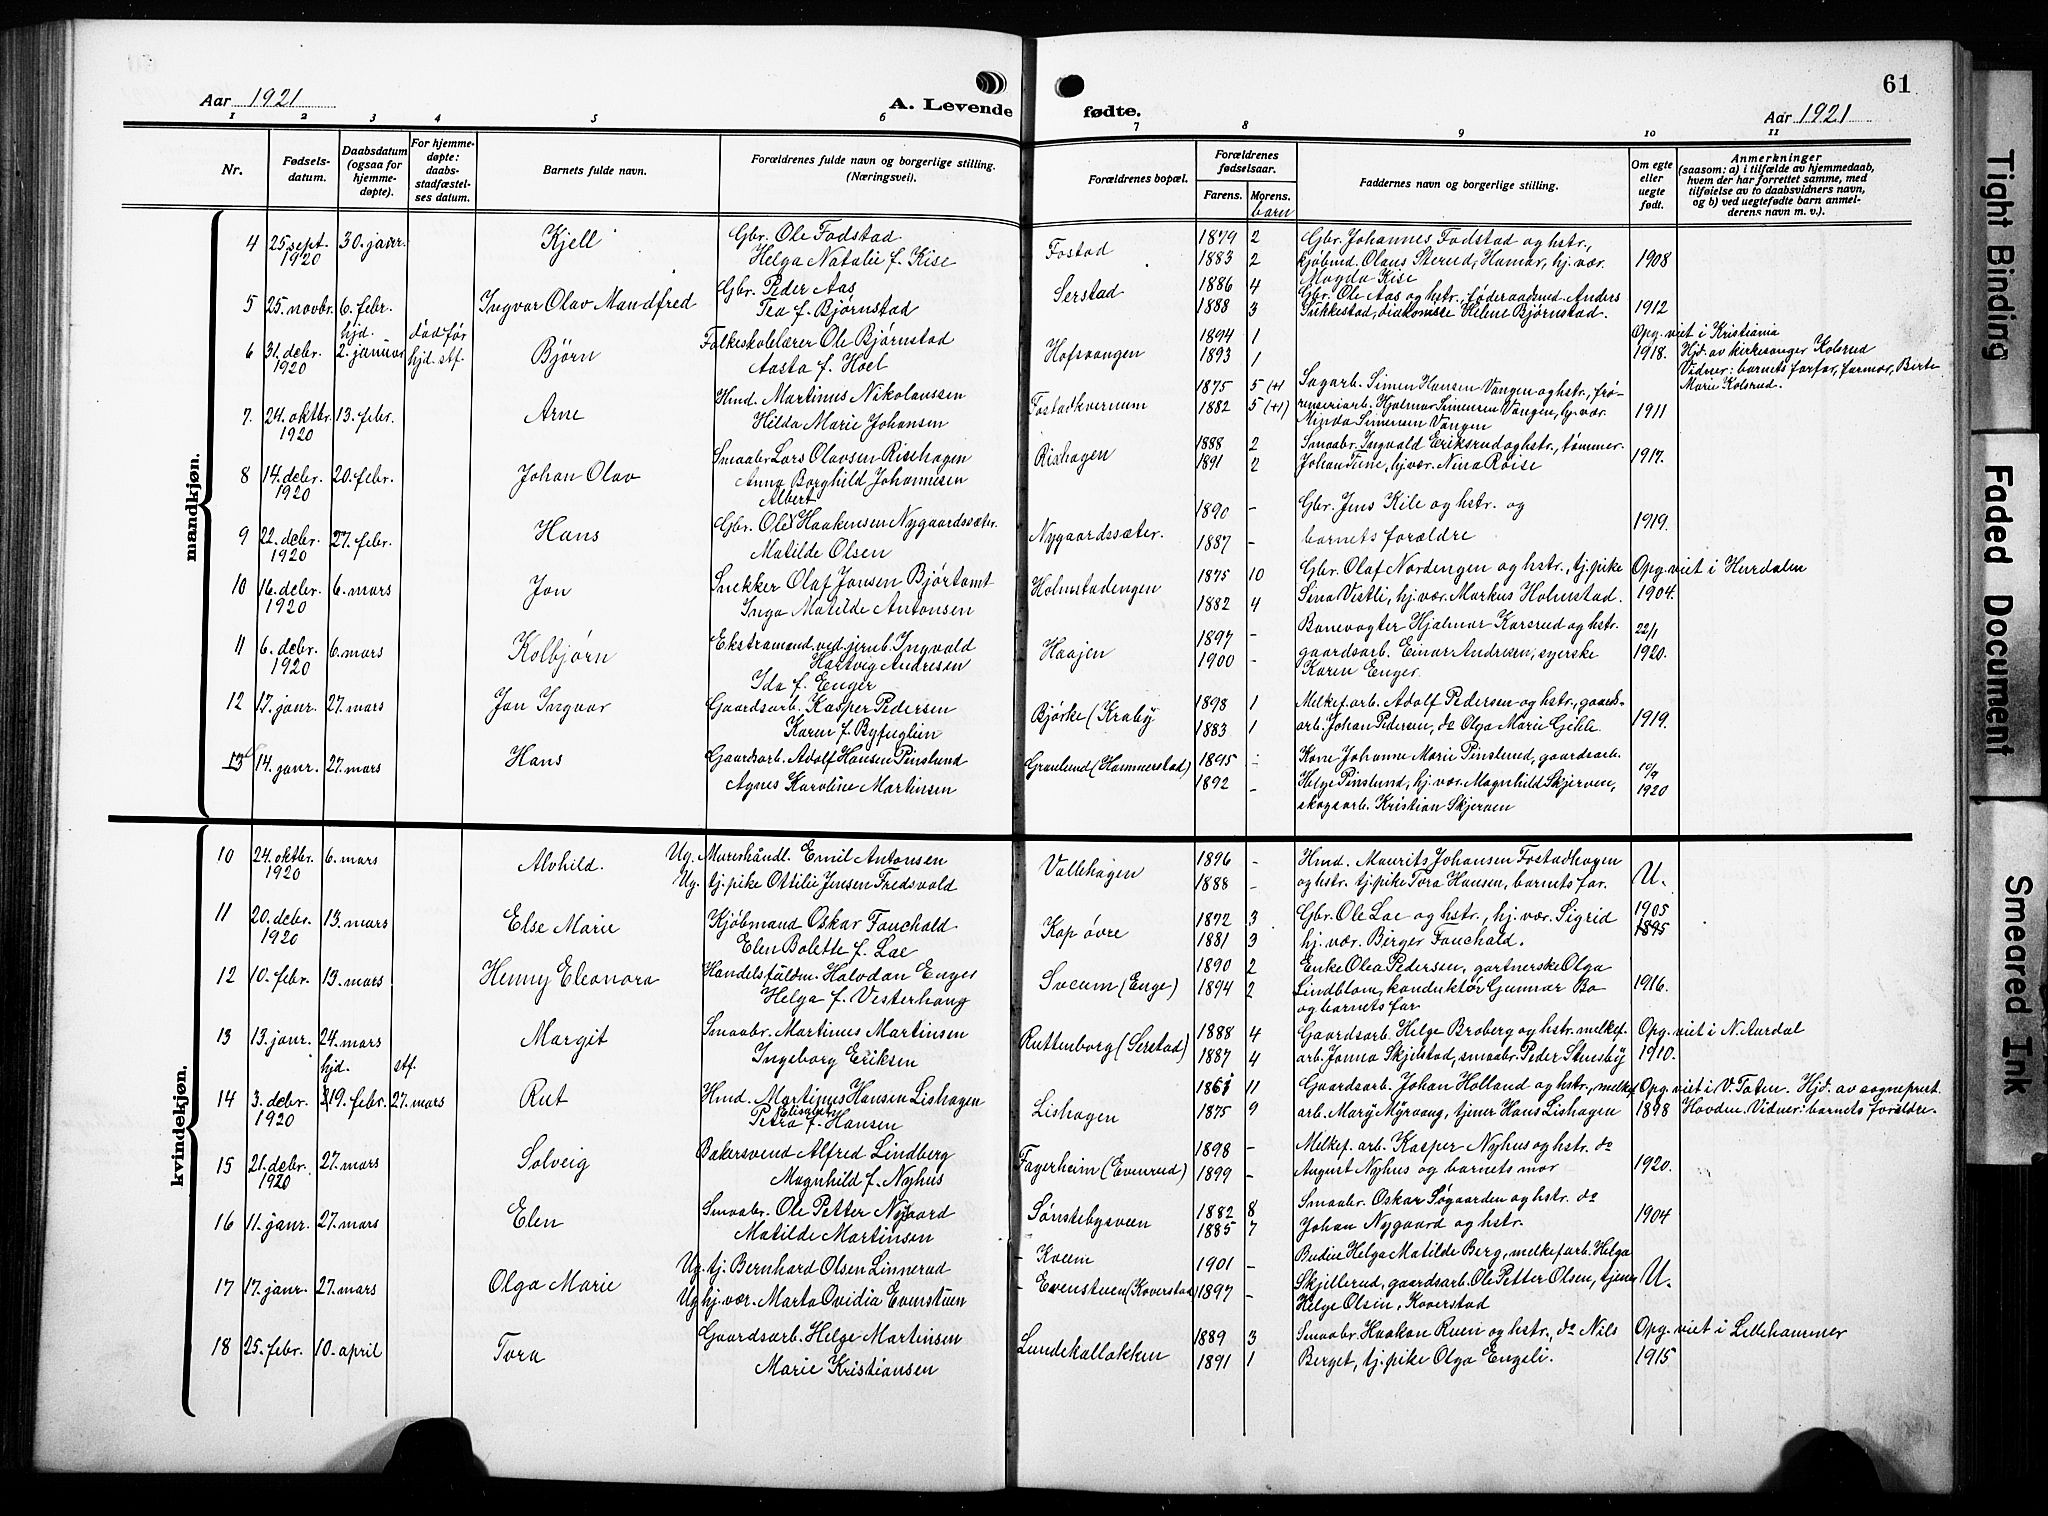 61
Aar 1921
A. Levende fødte.
Aar 1921
1 2 3 4 5 6 7 8 9 10 11
Nr.
Fødselsdatum.
Daabsdatum (ogsaa for hjemmedøpte).
For hjemmedøpte: daabsstadfæstelses datum.
Barnets fulde navn.
Forældrenes fulde navn og borgerlige stilling. (Næringsvei).
Forældrenes bopæl.
Forældrenes fødselsaar.
Farens. Morens.
barn
Faddernes navn og borgerlige stilling.
Om egte eller uegte født.
Anmerkninger
(saasom: a) i tilfælde av hjemmedaab,
hvem der har forrettet samme, med
tilføielse av to daabsvidners navn,
og b) ved uegtefødte barn anmelderens navn m. v.).
mandkjøn.
4 25. sept. 1920 30. januar. Kjell
Gbr. Ole Fodstad
Helga Natalie f. Kise
Fostad
1879 2
1883 2
Gbr. Johannes Fodstad og hstr.,
kjøbmd. Olaus Sterud, Hamar, hj. vær.
Magda Kise
1908
5 25. novbr. 6. febr. Ingvar Olav Mandfred
Gbr. Peder Aas
Tea f. Bjørnstad
Serstad
1886 4
1888 3
Gbr. Ole Aas og hstr., føderaadsmd. Anders
Sukkestad, diakonisse Helene Bjørnstad.
1912
6 31. debr. 1920 hjd. 2. januar død før hjd. stf. Bjørn
Folkeskolelærer Ole Bjørnstad
Aasta f. Hoel
Hofsvangen
1894 1
1893 1
Opg. viet i Kristiania
1918. Hjd. av kirkesanger Kolsrud
Vidner: barnets farfar, farmor, Birte
Marie Kolsrud.
7. 24. oktbr. 1920 13. febr. Arne
Hmd. Martinus Nikolaussen
Hilda Marie Johansen
Fostadkvernum
1875 5 (+1)
1882 5 (+1)
Sagarb. Simen Hansen Vangen og hstr., frørenseriarb. Hjalmar Simensen Vangen, hj. vær.
Minda Simensen Vangen
1911
8 14. debr. 1920 20. febr. Johan Olav
Smaabr. Lars Olavsen Rishagen
Anna Borghild Johannesen
Rishagen
1888 2
1891 2
Smaabr. Ingvald Eriksrud og hstr., tømmer.
Johan Tune, hj. vær. Nina Røise
1917.
9 22. debr. 1920 27. febr. Hans
Albert
Gbr. Ole Haakensen Nygaardssæter.
Matilde Olsen
Nygaardssæter.
1890 -
1887 -
Gbr. Jens Kile og hstr. og
barnets forældre
1919.
10 16. debr. 1920 6. mars Jan
Snekker Olaf Jansen Bjørtomt
Inga Matilde Antonsen
Holmstadengen
1875 10
1882 4
Gbr. Olaf Nordengen og hstr., tj. pike
Sina Vestli, hj. vær. Markus Holmstad.
Opg. viet i Hurdalen
1904.
11 6. debr. 1920 6. mars Kolbjørn
Ekstramand ved jernb. Ingvald
Hartvig Andresen
Ida f. Enger
Haajen
1897 -
1900 -
Banevogter Hjalmar Karsrud og hstr.
gaardsarb. Einar Andresen, syerske
Karen Enger
22/1
1920.
12 17. janr. 27. mars Jan Ingvar
Gaardsarb. Kasper Pedersen
Karen f. Byfuglien
Bjørke (Kraby
1898 1
1883 1
Melkef. arb. Adolf Pedersen og hstr., gaardsarb. Johan Pedersen, do Olga Marie Gihle.
1919.
13 14. janr. 27. mars Hans
Gaardsarb. Adolf Hansen Pinslund
Agnes Karoline Martinsen
Graulund (Hammerstad)
1895 -
1892 -
Kone Johanne Marie Pinslund, gaardsarb.
Helge Pinslund, hj. vær. Magnhild Skjerven,
skogsarb. Kristian Skjerven
10/9
1920
kvindekjøn.
10 24. oktbr. 1920 6. mars Alvhild.
Ug. Mureshåndl. Emil Antonsen
Ug. tj. pike Ottilie Jensen Fredsvold
Vallehagen
1896 -
1888 -
Hmd. Maurits Johansen Fostadhagen
og hstr. tj. pike Tora Hansen, barnets far.
U.
11 20. debr. 1920 13. mars Else Marie
Kjøbmand Oskar Fauchald
Elen Bolette f. Lae
Kap øvre
1872 3
1881 3
Gbr. Ole Lae og hstr., hj. vær. Sigrid
hj. vær. Birger Fauchald.
1905
1895
12 10. febr. 13. mars Henny Eleonora
Handelsfuldm. Halvdan Enger
Helga f. Vesterhaug
Sveum (Enge)
1890 2
1894 2
Enke Olea Pedersen, gartnerske Olga
Lindblom, konduktør Gunnar Bo
og barnets far
1916.
13 13. janr. 24. mars Margit
Smaabr. Martinus Martinsen
Ingeborg Eriksen
Ruttenborg (Serstad)
1888 4
1887 4
Gaardsarb. Helge Broberg og hstr. melkef.
arb. Janna Skjelstad, smaabr. Peder Stensby
Opg. viet i N. Aurdal
1910.
14 3. debr. 1920 hjd. 19. febr. stf. 27. mars Rut
Hmd. Martinus Hansen Lishagen
Elisabet
Petra f. Hansen
Lishagen
1861 11
1875 9
Gaardsarb. Johan Holland og hstr., melkef.
arb. Mary Myrvang, tjener Hans Lishagen
Opg. viet i V. Toten. Hjd. av sogneprest
1898 Hovden. Vidner: barnets forældre.
15 21. debr. 1920 27. mars Solveig
Bakersvend Alfred Lindberg
Magnhild f. Nyhus
Fagerheim (Evenrud)
1898 -
1899 -
Melkef. arb. Kasper Nyhus og hstr. do
August Nyhus og barnets mor
1920.
16 11. janr. 27. mars Elen
Smaabr. Ole Petter Nygaard
Matilde Martinsen
Sønstebysveen
1882 8
1885 7
Smaabr. Oskar Søgaarden og hstr. do
Johan Nygaard og hstr.
1904
17 17. janr. 27. mars Olga Marie
Ug. tj. Bernhard Olsen Linnerud
Ug. hj. vær. Marta Ovidia Evenstuen
- Kveem
- Evenstuen (Koverstad)
1901 -
1897 -
Budeie Helga Matilde Berg, melkef. arb. Helga
Skjellerud, gaardsarb. Ole Petter Olsen, tjener
Helge Olsen, Koverstad
U.
18 25. febr. 10. april Tora
Gaardsarb. Helge Martinsen
Marie Kristiansen
Lundekalløkken
1889 3
1891 1
Smaabr. Haakon Ruen og hstr., do Nils
Berget, tj. pike Olga Engeli.
Opg. viet i Lillehammer
1915
Tight Binding
Faded Document
Smeared Ink